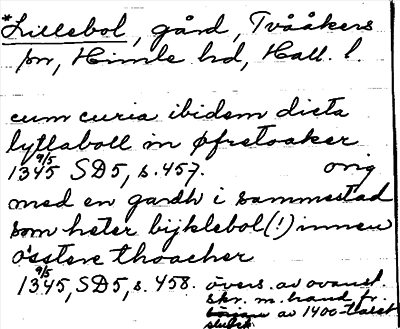 *Lillebol, gård, Tvååkers
sn, Himle hd, Hall. l.
cum curia ibidem dicta
lyttaboll in øfretoaker
1345 9/5 SD5, s. 457. orig
med en gardh i sammestad
som heter bijklebol (!) innen
östere thoacher
1345 9/5, SD5, s. 458. övers. av ovanst.
skr. m. hand fr.
början av 1400-talet
slutet